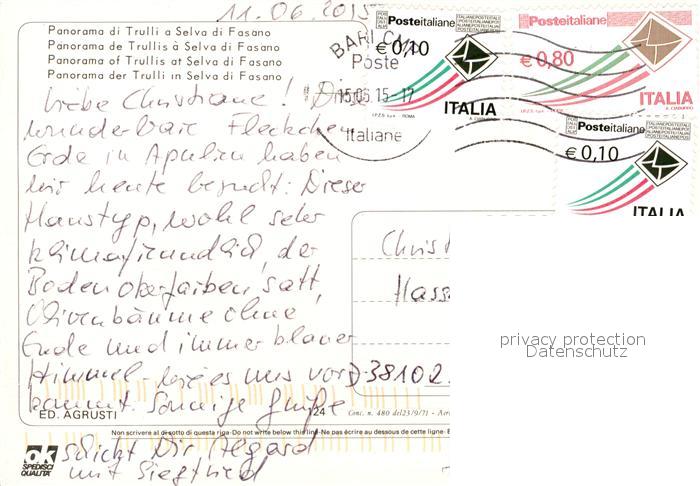 11.06.2015
Panorama di Trulli a Selva di Fasano
Panorama de Trullis à Selva di Fasano
Panorama of Trullis at Selva di Fasano
Panorama der Trulli in Selva di Fasano
Posteitaliane
€ 0,10
ITALIA
I.P.Z.S. S.p.A. - ROMA
Posteitaliane
€ 0,80
ITALIA
Posteitaliane
€ 0,10
ITALIA
BARI CMP
Poste
15.06.15-17
Italiane
Liebe Christiane! Diese
wunderbare Fleckchen
Erde in Apulien haben
wir heute besucht: Dieser
Haustyp, wohl sehr
klimafreundlich, der
Boden oberfarben satt,
Olivenbäume ohne
Ende und immer blauer
Himmel - wie es uns vor-
kommt. Sonnige Grüße
schickt Dir Irmgard
mit Siegfried
Christ
Hass
D-38102
privacy protection
Datenschutz
ED. AGRUSTI
124
Conc. n. 480 del 23/9/71 - Aer
Non scrivere al di sotto di questa riga - Do not write below this line - Ne pas écrire au dessous de cette ligne -
ok
SPEDISCI
QUALITÀ